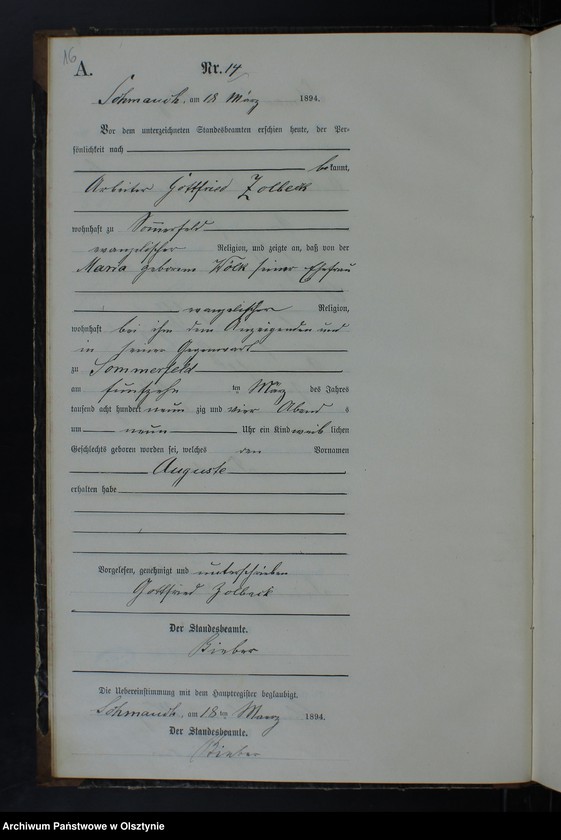 16
A.
Nr. 14
Schmauch, am 18 März 1894.
Vor dem unterzeichneten Standesbeamten erschien heute, der Per-
sönlichkeit nach
bekannt,
Arbeiter Gottfried Zolbeck
wohnhaft zu Sommerfeld
evangelischer Religion, und zeigte an, daß von der
Maria geborene Wölk seiner Ehefrau
evangelischer Religion,
wohnhaft bei ihm dem Anzeigenden und
in seiner Gegenwart
zu Sommerfeld
am fünfzehn ten März des Jahres
tausend acht hundert neun zig und vier Abend s
um neun Uhr ein Kind weib lichen
Geschlechts geboren worden sei, welches den Vornamen
Auguste
erhalten habe
Vorgelesen, genehmigt und unterschrieben
Gottfried Zolbeck
Der Standesbeamte.
Bieber
Die Uebereinstimmung mit dem Hauptregister beglaubigt.
Schmauch, am 18 ten Maerz 1894.
Der Standesbeamte.
Bieber
Archiwum Państwowe w Olsztynie